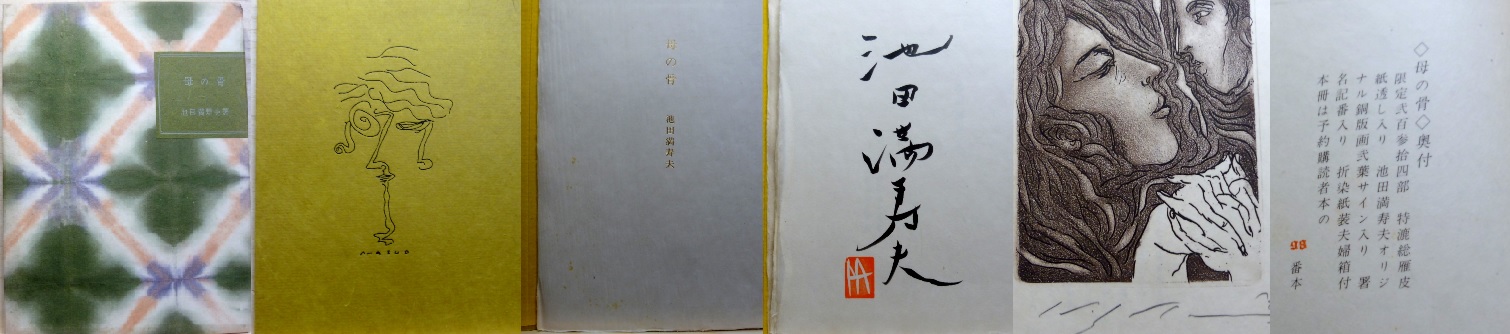 母の骨
池田満寿夫
MASUO
母の骨
池田満寿夫
池田満寿夫
◇母の骨◇奥付
限定弐百参拾四部 特漉総雁皮
紙透し入り 池田満寿夫オリジ
ナル銅版画弐葉サイン入り 署
名記番入り 折染紙装夫婦箱付
本冊は予約購読者本の
98 番本